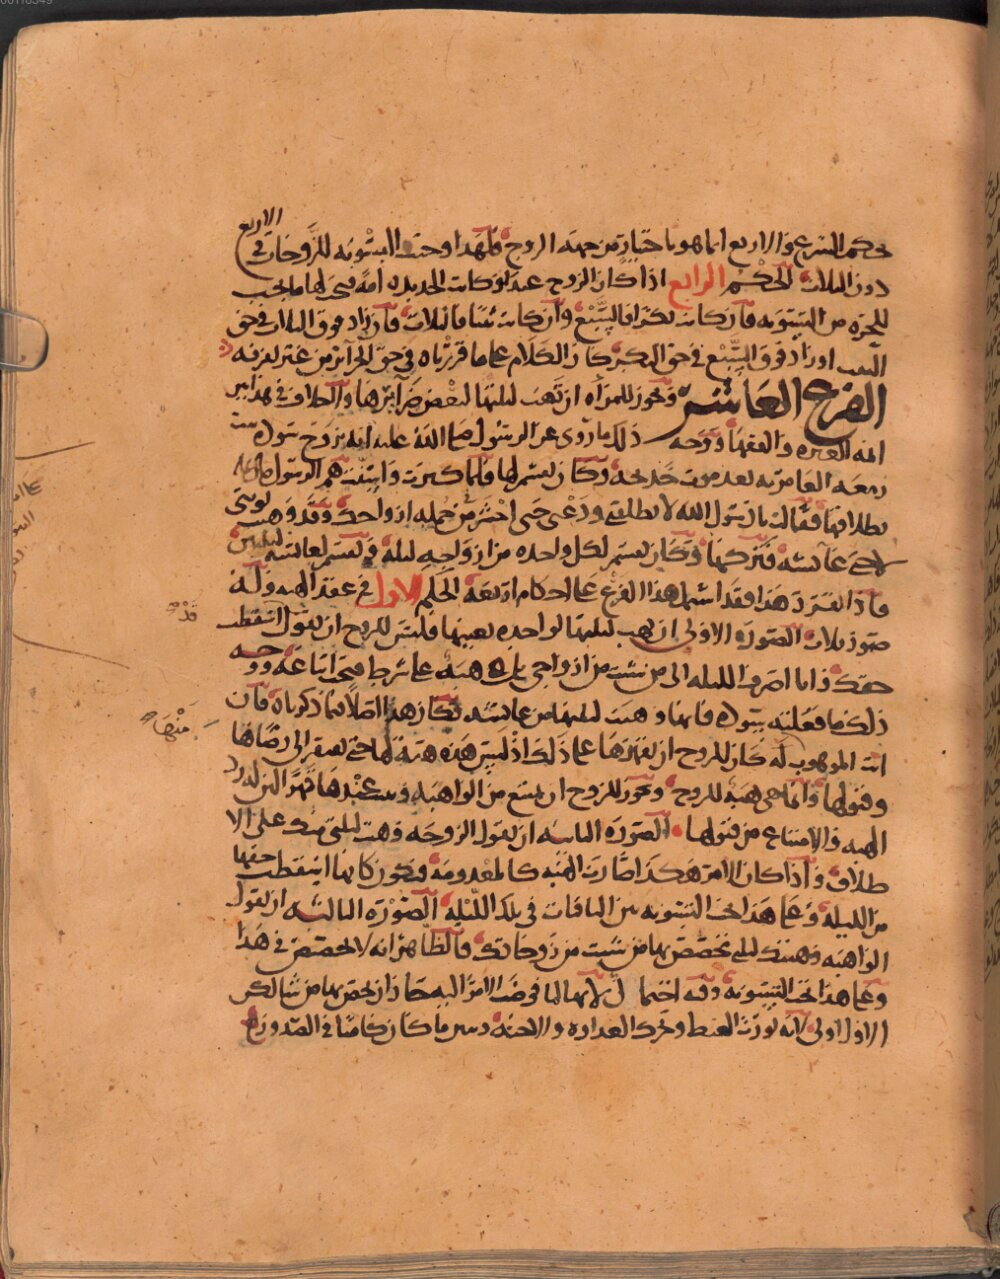 الاربع
بحكم الشرع والاربع انما هو باختياره من جهة الزوج فلهذا وجبت التسوية للزوجات في
دون الثلاث الحكم الرابع اذا كان الزوج عبد لو كانت الجديده امة فيجب لها ما يجب
للحره من التسوية فان كانت بكرا فالسبع وان كانت ثيبا فالثلاث فان زاد فوق الثلاث في حق
الثيب او زاد فوق السبع في حق البكر كان الكلام على ما قررناه في حق الحرائر من غير تفرقه
الفرع العاشر ويجوز للمراه ان تهب ليلتها لبعض ضرائرها والخلاف في هذا بين
ائمة العتره والفقها ووجه ذلك ما روى عن الرسول صلى الله عليه انه تزوج سوده بنت
زمعه العامريه بعد موت خديجه وكان يقسم لها فلما كبرت واسنت هم الرسول
بطلاقها فقالت يا رسول الله لا تطلقني ودعني حتى احشر من جملة ازواجك وقد وهبت نوبتي
لاختي عائشه فتركها وكان يقسم لكل واحده من ازواجه ليله ويقسم لعائشه ليلتين
فاذا تقرر هذا فقد اشتمل هذا الفرع على احكام اربعه الحكم الاول في عقد الهبه وله
صور ثلاث الصوره الاولى ان تهب ليلتها لواحده بعينها فليس للزوج ان يقول اسقطت
حقك وانا اصرف الليله الى من شئت من ازواجي بل هبه على شرط فيجب اتباعه ووجه
ذلك ما فعلته سوده فانها وهبت ليلتها من عائشه فكان هذا اصلا لما ذكرناه فان
ابت الموهوب له كان للزوج ان يقهرها على ذلك اذ ليس هذه هبة لها حتى يفتقر الى رضاها
وقبولها وانما هي هبة للزوج ويجوز للزوج ان يمتنع من الواهبه ويبيت عندها قهرا لان له رد
الهبه والامتناع من قبولها الصوره الثانيه ان تقول الزوجه وهبت ليلتي منك على الا
طلاق واذا كان الامر هكذا صارت الهبه كالمعدومه وتكون كانها اسقطت حقها
من الليله وعلى هذا تجب التسويه بين الباقيات في تلك الليله الصوره الثالثه ان تقول
الواهبه وهبتك ليلتي تخصص بها من شئت من زوجاتك فالظاهر انه لا يخصص في هذا
وعلى هذا تجب التسوية وفيه احتمال لانها لما فوضت الامر اليه جاز ان يخص بها من شا لكن
الاول اولى لانه يورث الغيظ ويحرك العداوه والاحنه ويثير ما كان كامنا في الصدور
قد
منها